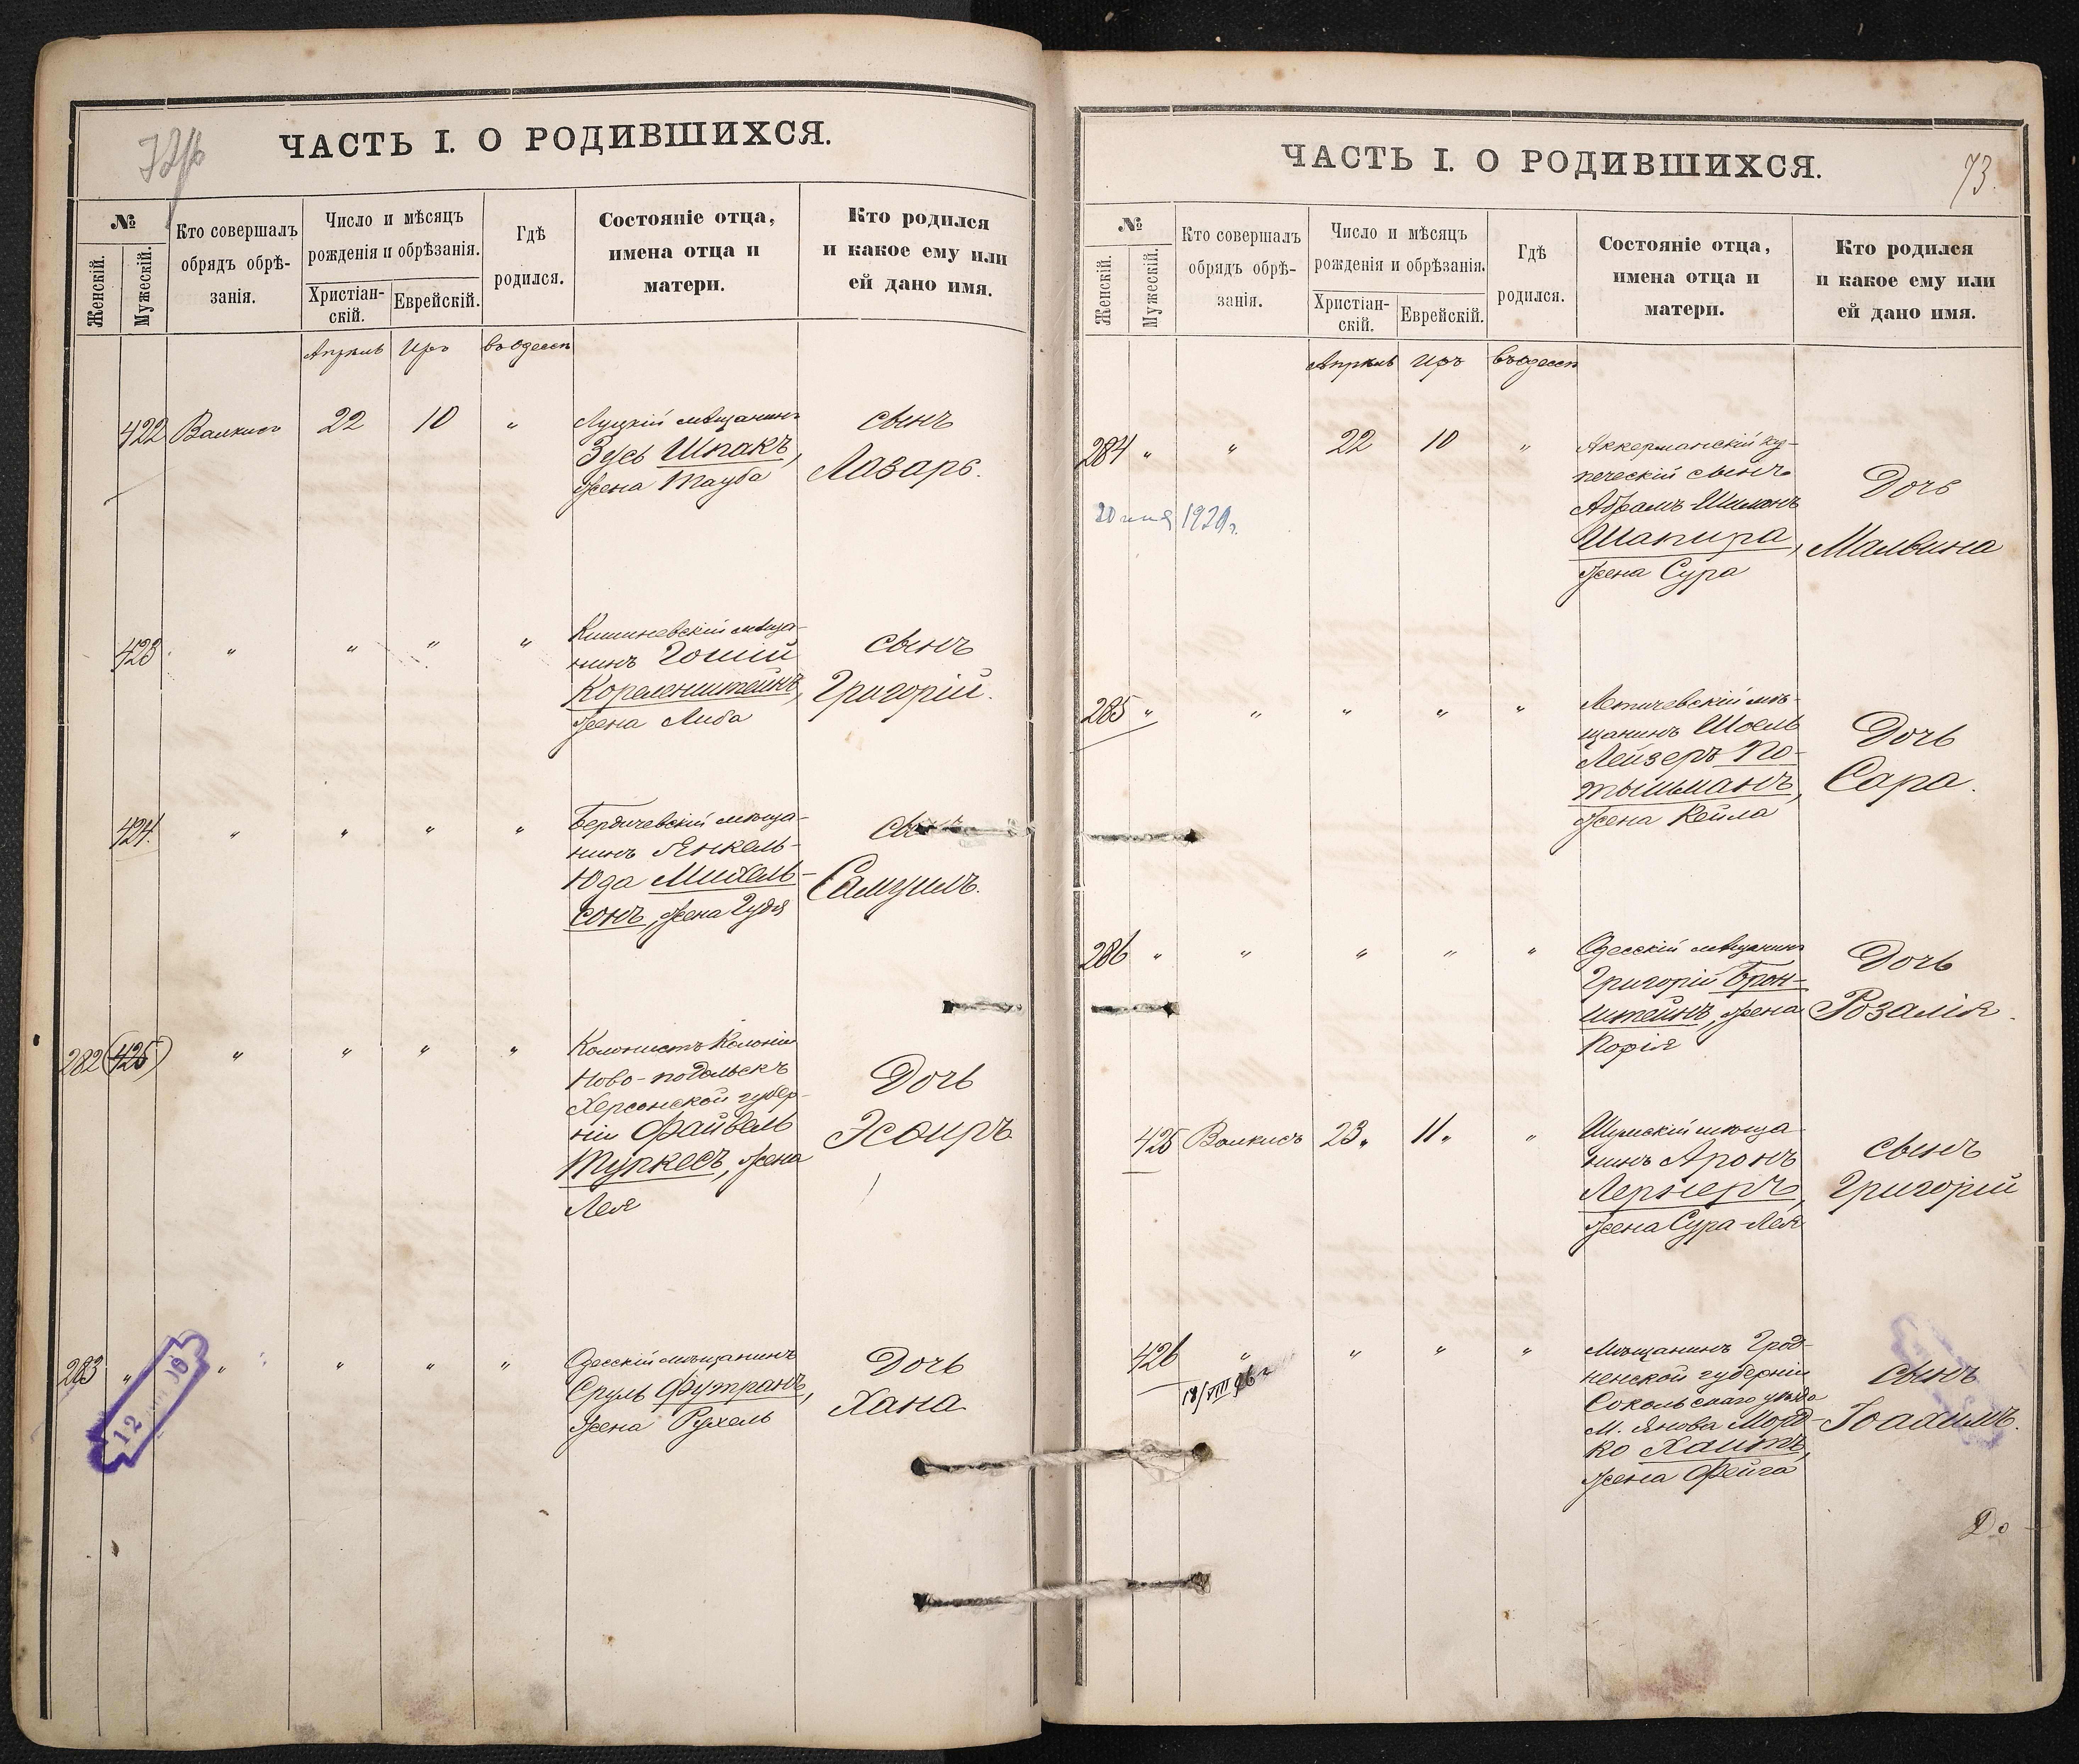 ЧАСТЬ I. О РОДИВШИХСЯ.
№
Женскій.
Мужескій.
Кто совершалъ
обрядъ обрѣ-
занія.
Число и мѣсяцъ
рожденія и обрѣзанія.
Христіан-
скій.
Еврейскій.
Гдѣ
родился.
Состояніе отца,
имена отца и
матери.
Кто родился
и какое ему или
ей дано имя.
Апрѣль Иръ въ Одессѣ
422 22 10 "
Луцкій мѣщанинъ
Зусь Шпакъ,
жена Тауба
сынъ
Лазарь.
423 " " " "
Кишиневскій мѣща-
нинъ
жена Либа
сынъ
Григорій.
424. " " " "
Бердичевскій мѣща-
нинъ Янкель-
Юда Михель-
сонъ, жена
сынъ
Самуилъ.
282 (425) " " " "
Колонистъ Колоніи
Ново-подольскъ
Херсонской губер-
ніи Файвель
Туркесъ, жена
Лея
Дочь
Эсѳирь
283 " " " " "
Одесскій мѣщанинъ
Сруль Футранъ,
жена Рухель
Дочь
Хана
12
ЧАСТЬ I. О РОДИВШИХСЯ.
73.
№
Женскій.
Мужескій.
Кто совершалъ
обрядъ обрѣ-
занія.
Число и мѣсяцъ
рожденія и обрѣзанія.
Христіан-
скій.
Еврейскій.
Гдѣ
родился.
Состояніе отца,
имена отца и
матери.
Кто родился
и какое ему или
ей дано имя.
Апрѣль Иръ въ Одессѣ
284 " " 22 10 "
Аккерманскій ку-
печескій сынъ
Абрамъ-Шимонъ
Шапира,
жена Сура
Дочь
Мальвина
285 " " " " "
Летичевскій мѣ-
щанинъ Шоель
Лейзеръ По-
тышманъ,
жена Кейла
Дочь
Сара.
286 " " " " "
Одесскій мѣщанинъ
Григорій Брон-
штейнъ, жена
Дочь
Розалія.
425 23. 11. "
Шумскій мѣща-
нинъ Аронъ
Лернеръ,
жена Сура-Лея
сынъ
Григорій
426 " " " "
18/VIII
Мѣщанинъ Грод-
ненской губерніи
Сокольскаго уѣзда
М. Янова Морд-
ко Хаитъ,
жена Фейга
сынъ
Іоахимъ.